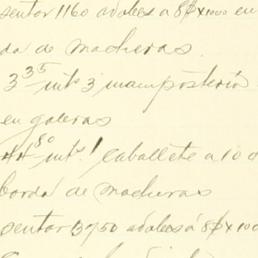 sentar 1160 adobes á 8$ x 1000 en
da de macheras.
3 35 mts 3 mampostería
en galeras
44 80 mts. 1 caballete a 10 0
borda de macheras
sentar 3750 adobes á 8$ x 100